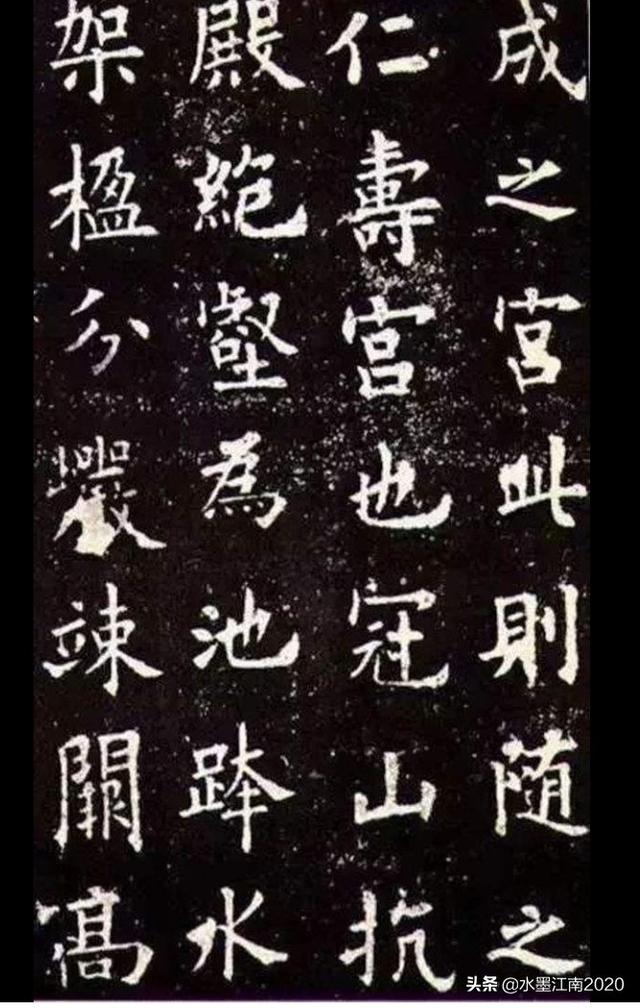 成之宫此則随之
仁壽宫也冠山抗
殿絶壑為池跨水
架楹分巖竦闕高
头条 @水墨江南2020